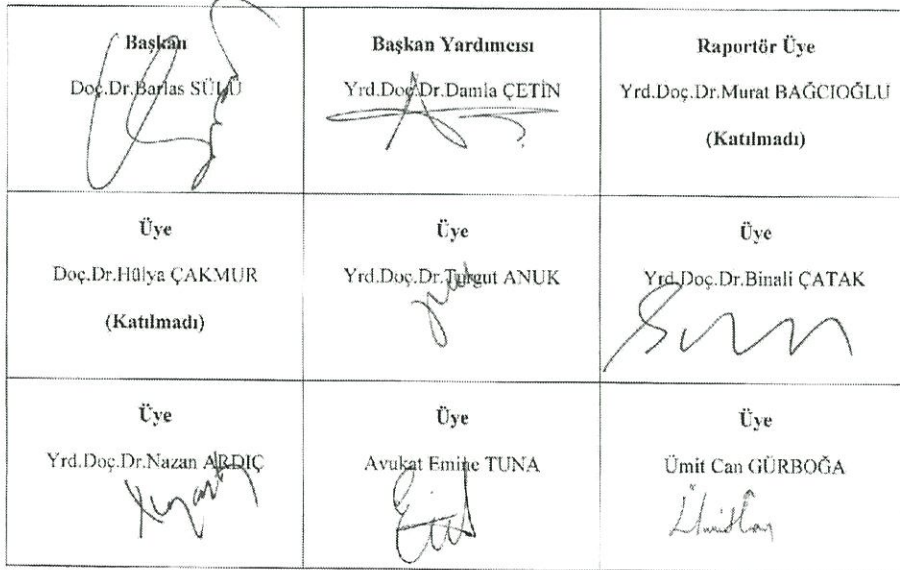 Başkan
Doç.Dr.Barlas SÜLÜ
Başkan Yardımcısı
Yrd.Doç.Dr.Damla ÇETİN
Raportör Üye
Yrd.Doç.Dr.Murat BAĞCIOĞLU
(Katılmadı)
Üye
Doç.Dr.Hülya ÇAKMUR
(Katılmadı)
Üye
Yrd.Doç.Dr.Turgut ANUK
Üye
Yrd.Doç.Dr.Binali ÇATAK
Üye
Yrd.Doç.Dr.Nazan ARDIÇ
Üye
Avukat Emine TUNA
Üye
Ümit Can GÜRBOĞA